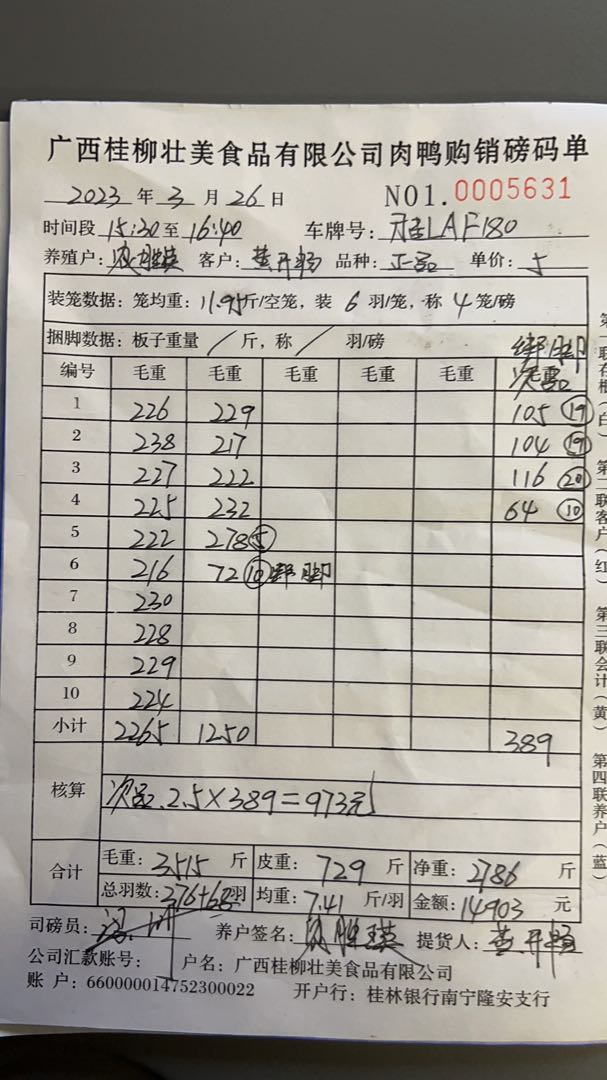 广西桂柳壮美食品有限公司肉鸭购销磅码单
2023 年 3 月 26 日 NO1.0005631
时间段 15:30 至 16:40 车牌号: 桂LAF180
养殖户: 客户: 黄开畅 品种: 正品 单价: 5
装笼数据: 笼均重: 11.95 斤/空笼, 装 6 羽/笼, 称 4 笼/磅
捆脚数据: 板子重量 / 斤, 称 / 羽/磅 绑脚
编号 毛重 毛重 毛重 毛重 毛重 次品
1 226 229 105 19
2 238 217 104 19
3 227 222 116 20
4 225 232 64 10
5 222 278 5
6 216 72 10 绑脚
7 230
8 228
9 229
10 224
小计 2265 1250 389
核算 次品. 2.5×389=973元
合计 毛重: 3515 斤 皮重: 729 斤 净重: 2786 斤
总羽数: 376+68 羽 均重: 7.41 斤/羽 金额: 14903 元
司磅员: 养户签名: 提货人: 黄开畅
公司汇款账号: 户名: 广西桂柳壮美食品有限公司
账 户: 660000014752300022 开户行: 桂林银行南宁隆安支行
第二联客户(红)
第三联会计(黄)
第四联养户(蓝)